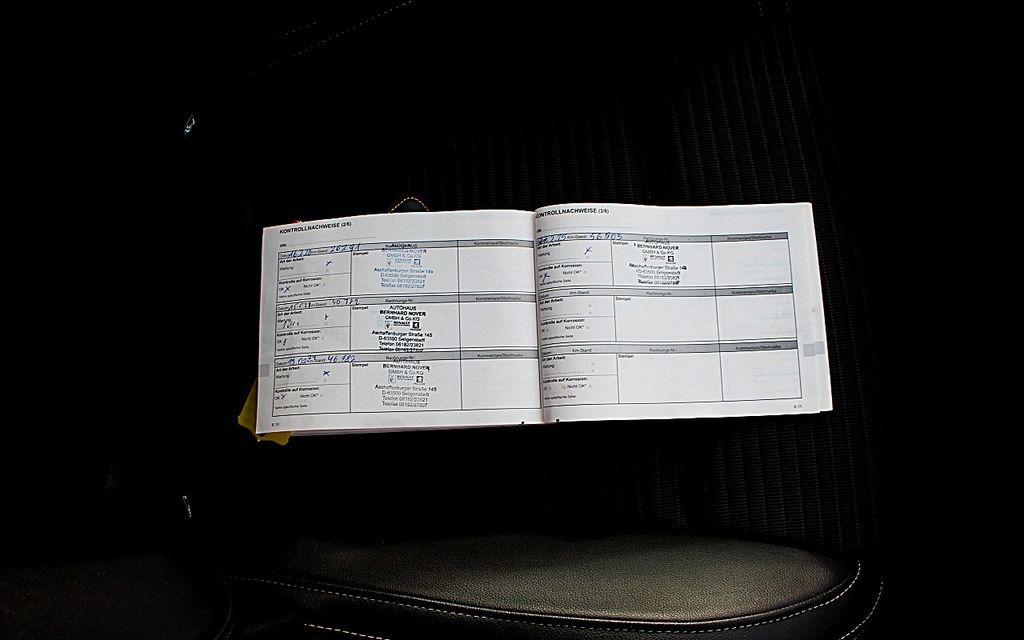 KONTROLLNACHWEISE (2/6)
VIN
Datum Km-Stand Rechnungs-Nr. Kommentare/Vermerke
Art der Arbeit: Stempel
Wartung
Kontrolle auf Korrosion:
OK X Nicht OK*
*siehe spezifische Seite
BERNHARD NOVER
GMBH & Co.KG
Aschaffenburger Straße 145
D-63500 Seligenstadt
Telefon 06182/23821
Telefax 06182/27807
Datum Km-Stand Rechnungs-Nr. Kommentare/Vermerke
Art der Arbeit: Stempel
Wartung
Kontrolle auf Korrosion:
OK Nicht OK*
*siehe spezifische Seite
AUTOHAUS
BERNHARD NOVER
GMBH & Co.KG
RENAULT
Aschaffenburger Straße 145
D-63500 Seligenstadt
Telefon 06182/23821
Telefax 06182/27807
Datum Km-Stand 46.782 Rechnungs-Nr. Kommentare/Vermerke
Art der Arbeit: Stempel
Wartung X
Kontrolle auf Korrosion:
OK X Nicht OK*
*siehe spezifische Seite
AUTOHAUS
BERNHARD NOVER
GMBH & Co.KG
RENAULT
Aschaffenburger Straße 145
D-63500 Seligenstadt
Telefon 06182/23821
Telefax 06182/27807
6.10
KONTROLLNACHWEISE (3/6)
VIN
Km-Stand 56.903 Rechnungs-Nr. Kommentare/Vermerke
Art der Arbeit: Stempel
Wartung X
Kontrolle auf Korrosion:
OK X Nicht OK*
*siehe spezifische Seite
AUTOHAUS
BERNHARD NOVER
GMBH & Co.KG
Aschaffenburger Straße 145
D-63500 Seligenstadt
Telefon 06182/23821
Telefax 06182/27807
Datum Km-Stand Rechnungs-Nr. Kommentare/Vermerke
Art der Arbeit: Stempel
Wartung
Kontrolle auf Korrosion:
OK Nicht OK*
*siehe spezifische Seite
Datum Km-Stand Rechnungs-Nr. Kommentare/Vermerke
Art der Arbeit: Stempel
Wartung
Kontrolle auf Korrosion:
OK Nicht OK*
*siehe spezifische Seite
6.11